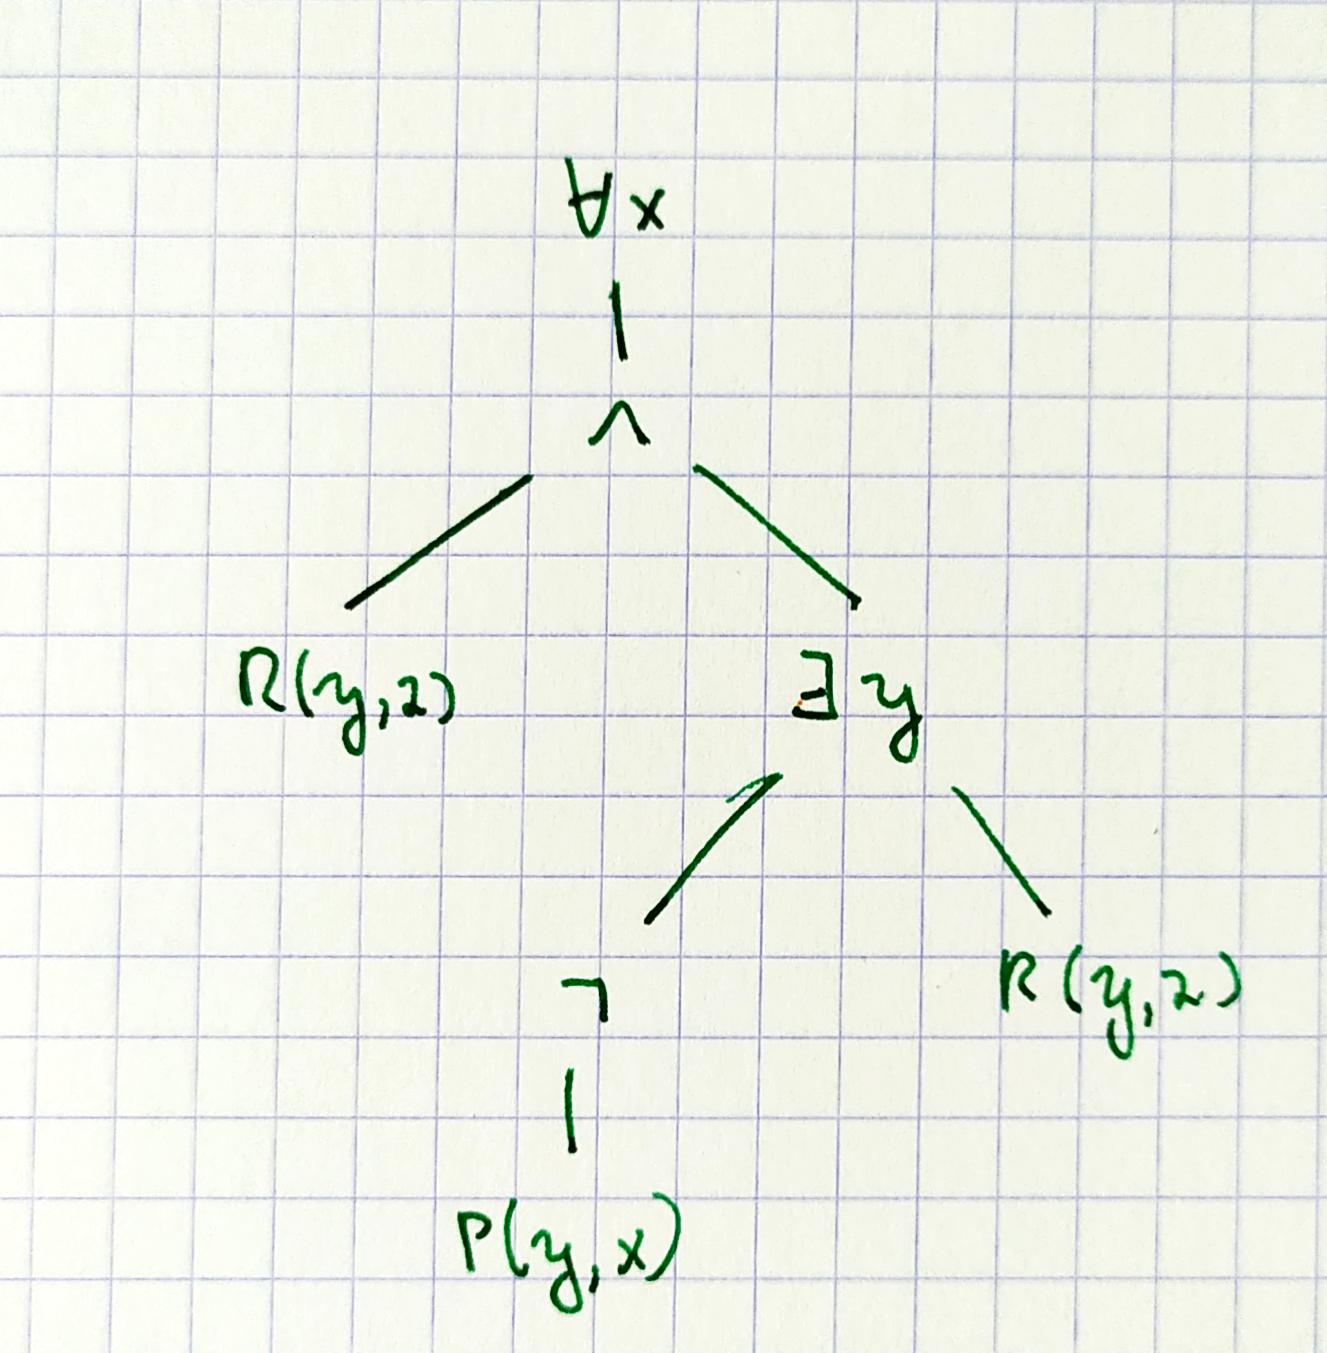 ∀x
∧
R(y,z)
∃y
¬
R(y,z)
P(y,x)